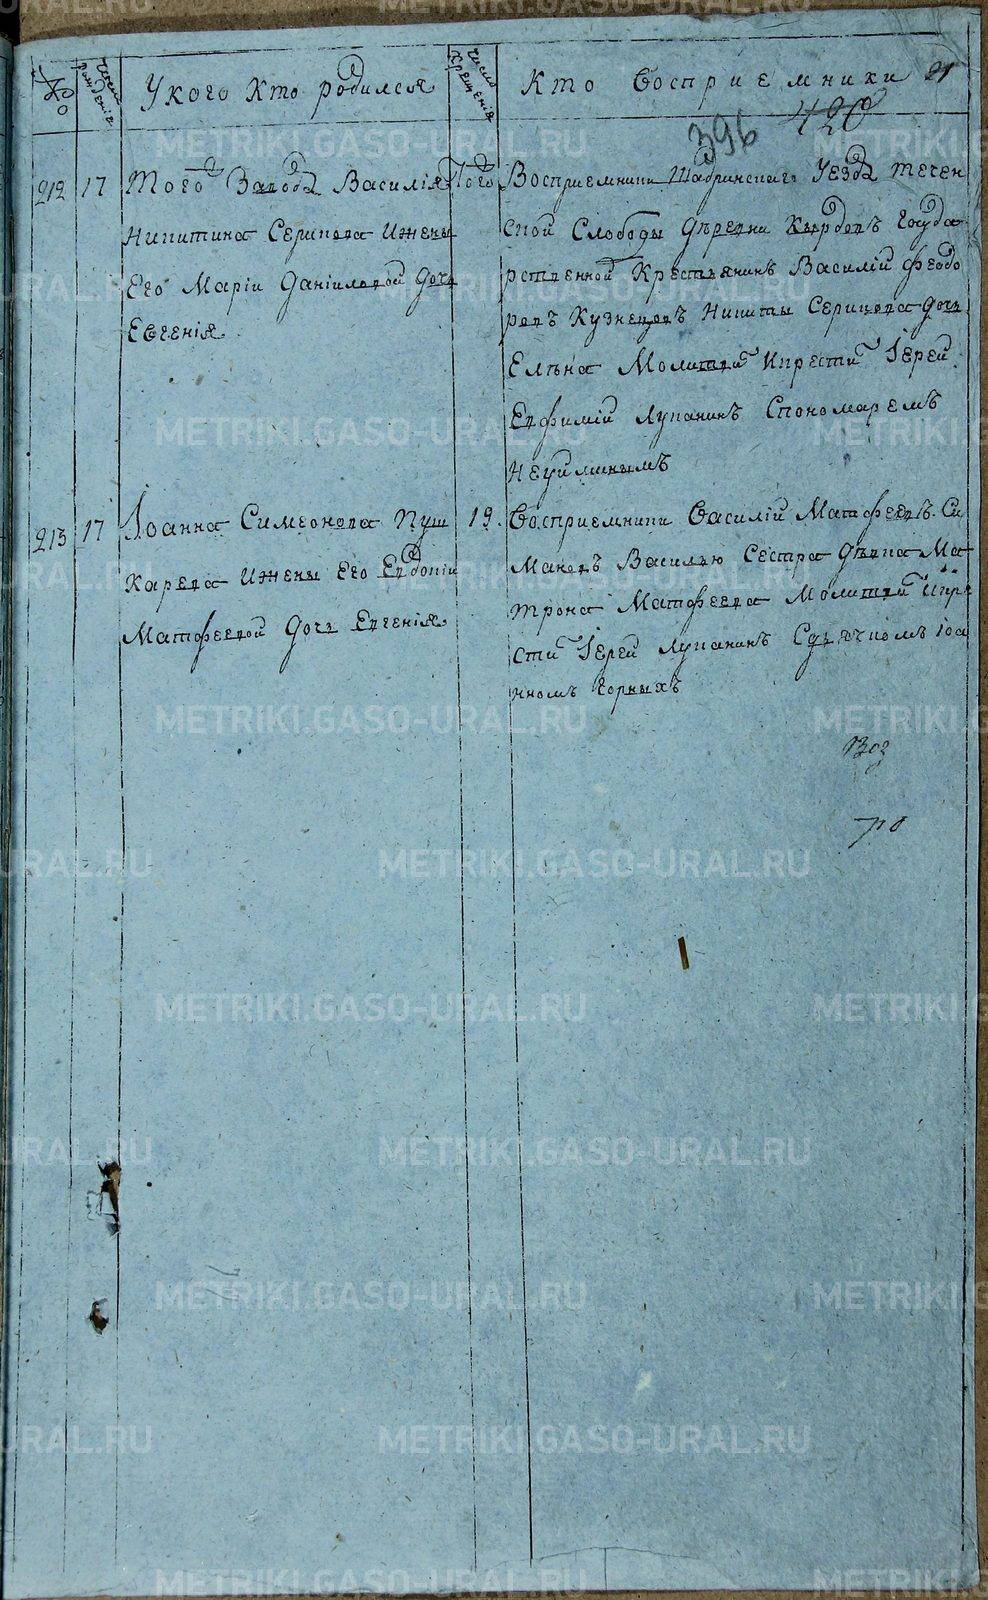 №
Число рождения
У кого кто родился
Число Крещения
Кто восприемники
21
420
396
212
17
Того Завода Василия
Никитина Серикова и жены
Его Марии Данииловой дочь
Евгения
Того
Восприемники Шадринскаго Уезда Течен
ской Слободы деревни Кырдовъ Госуда
рственной Крестьянинъ Василий Феодо
ровъ Кузнецовъ Никиты Серикова дочь
Елена Молитвил и крестил Iерей
Евфимий Лупанинъ с пономаремъ
213
17
Iоанна Симеонова Пуш
карева и жены Его Евдокии
Матфеевой дочь Евгения
19.
Восприемники Василий Матфеевъ Си
мановъ Василью Сестра девка Ма
трона Матфеева Молитвил и кре
стил Iерей Лупанинъ с дьячкомъ Iоа
нномъ Горныхъ
METRIKI.GASO-URAL.RU